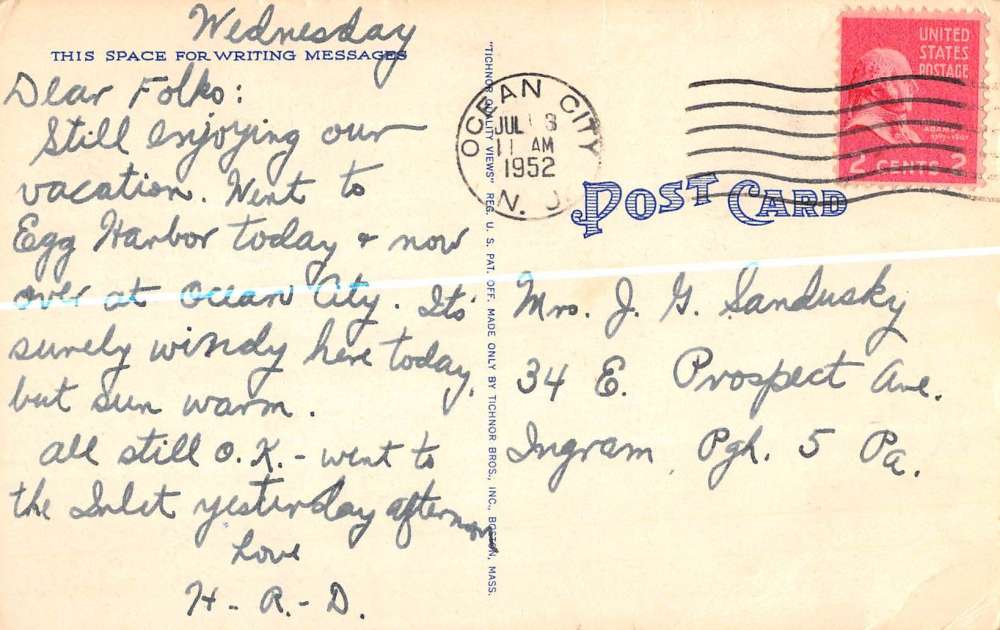 Wednesday
THIS SPACE FOR WRITING MESSAGES
Dear Folks:
Still enjoying our
vacation. Went to
Egg Harbor today & now
over at Ocean City. Its
surely windy here today,
but sun warm.
All still O.K. - went to
the Inlet yesterday afternoon
Love
H - R. - D.
"TICHNOR QUALITY VIEWS" REG. U. S. PAT. OFF. MADE ONLY BY TICHNOR BROS., INC., BOSTON, MASS.
OCEAN CITY
JUL
11 AM
1952
N. J.
UNITED
STATES
POSTAGE
ADAMS
2 CENTS 2
POST CARD
Mrs. J. G. Sandusky
34 E. Prospect Ave.
Ingram, Pgh. 5 Pa.